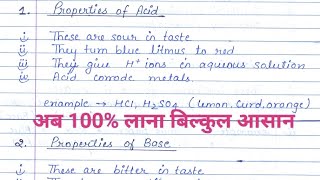 1. Properties of Acid
i) These are sour in taste
ii) They turn blue litmus to red
iii) They give H⁺ ions in aqueous solution
iv) Acid corrode metals.
example → HCl, H₂SO₄ (lemon, curd, orange)
अब 100% लाना बिल्कुल आसान
2. Properties of Base
i) These are bitter in taste